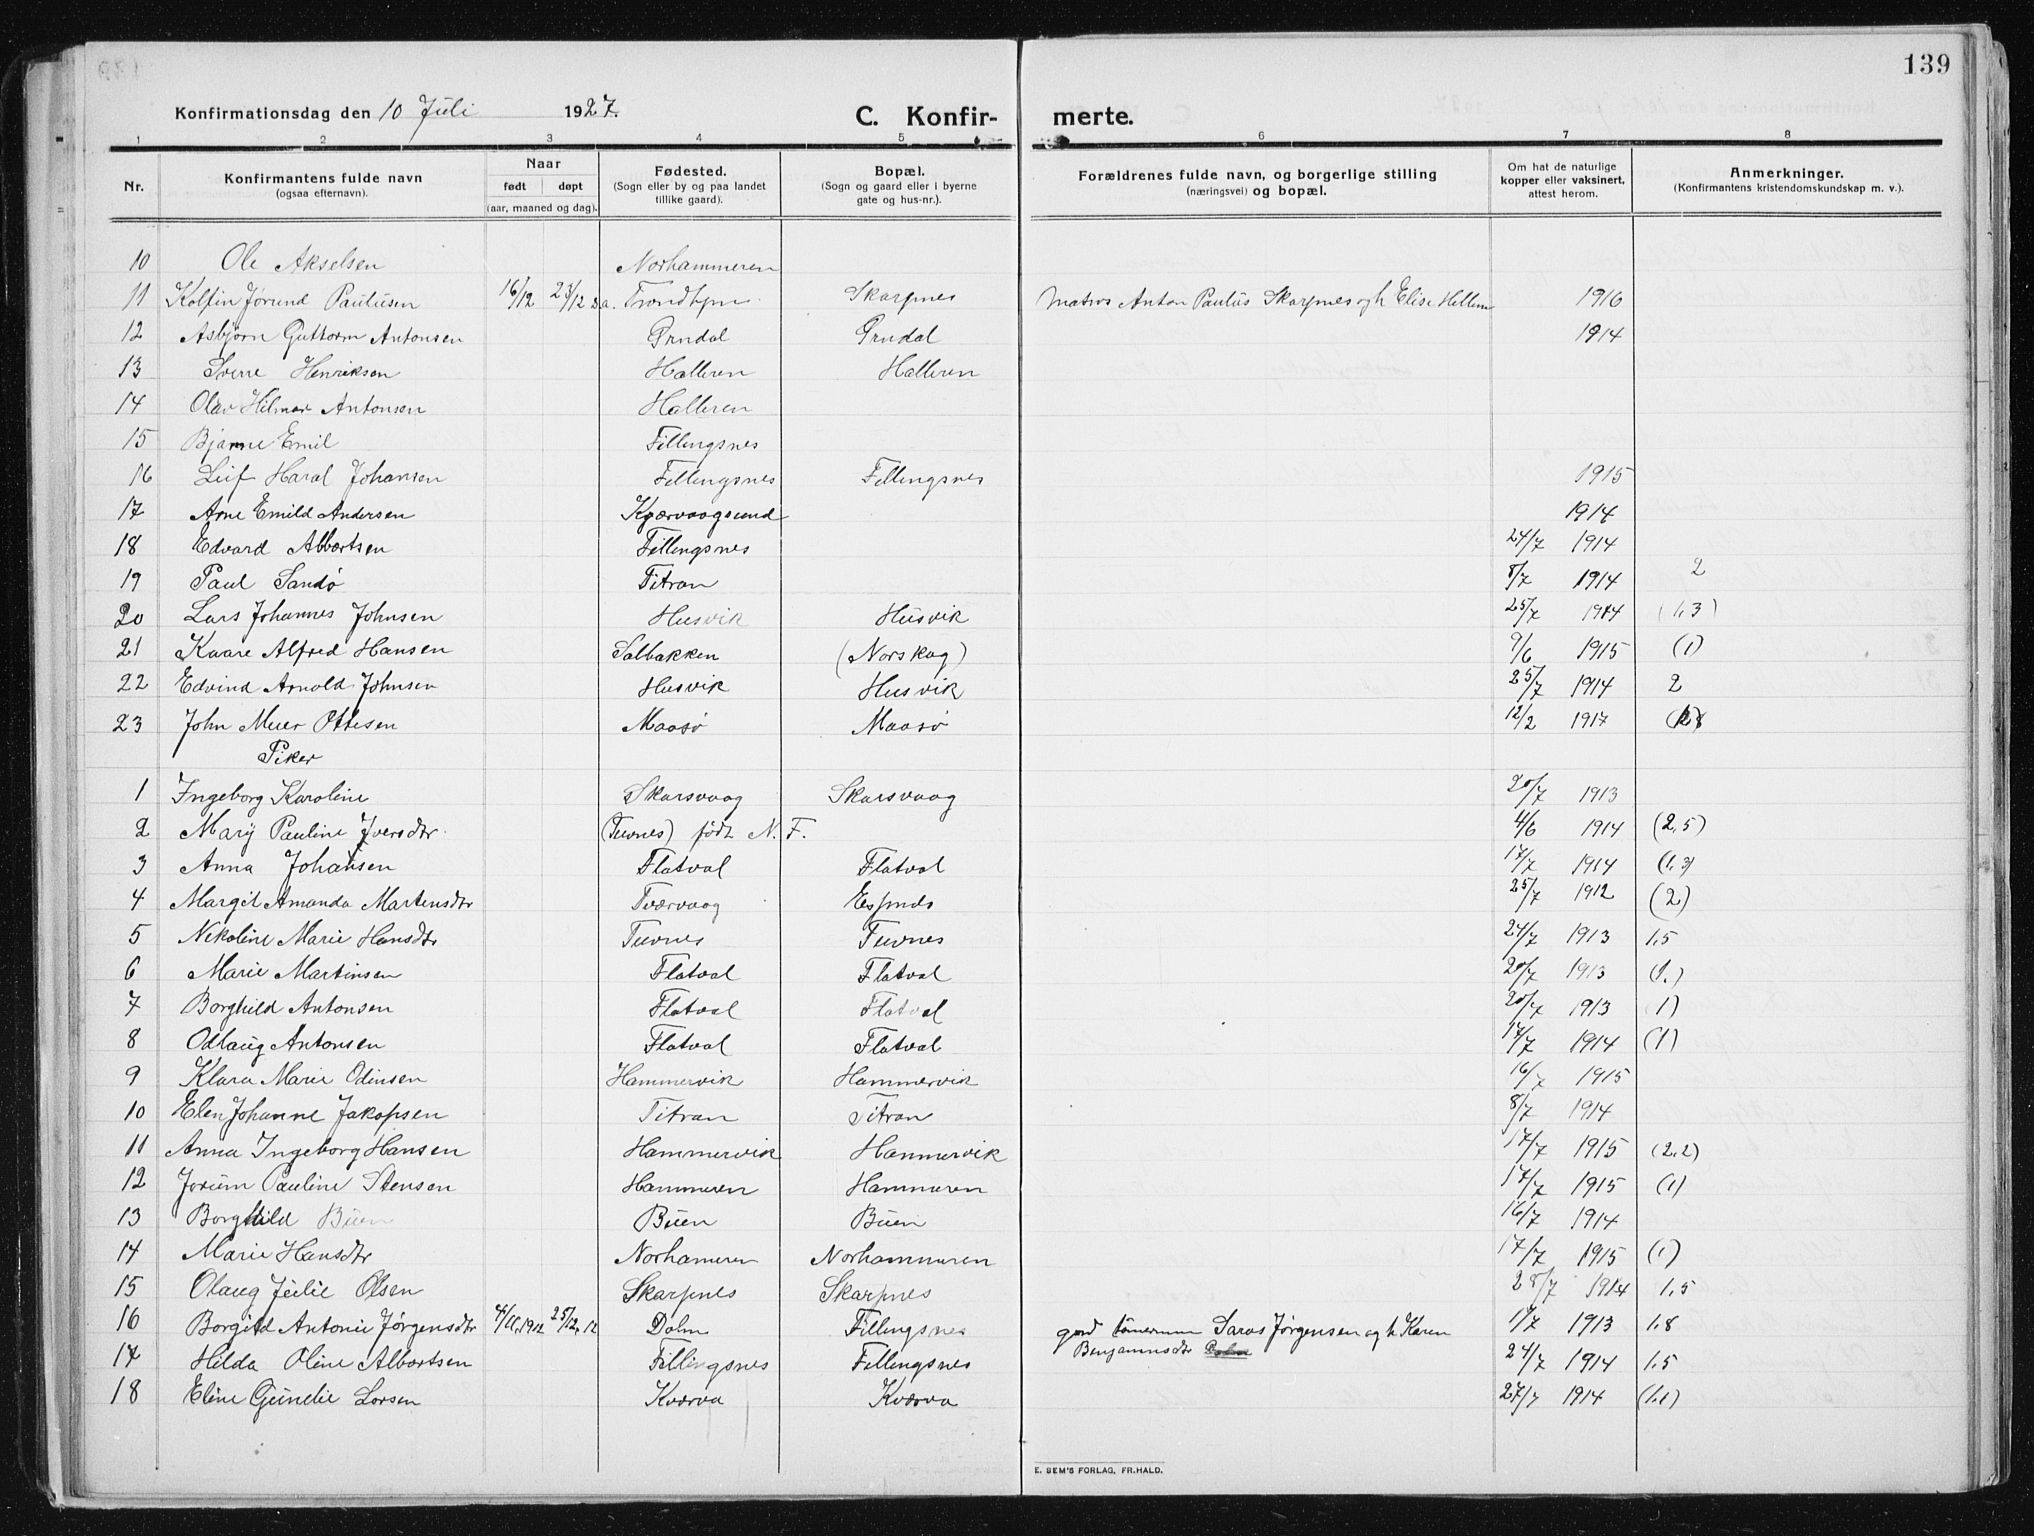 139
Konfirmationsdag den 10 Juli 1927. C. Konfir- merte.
1 2 3 4 5 6 7 8
Nr. Konfirmantens fulde navn (ogsaa efternavn). Naar født døpt (aar, maaned og dag). Fødested. (Sogn eller by og paa landet tillike gaard). Bopæl. (Sogn og gaard eller i byerne gate og hus-nr.). Forældrenes fulde navn, og borgerlige stilling (næringsvei) og bopæl. Om hat de naturlige kopper eller vaksinert, attest herom. Anmerkninger. (Konfirmantens kristendomskundskap m. v.).
10 Ole Akselsen Norhammeren
11 Kolfin Jørund Paulusen 16/12 23/12 d.a. Trondhjm Skarpnes Matros Anton Paulus Skarpnes og h Elise Hellem 1916
12 Asbjørn Guttorm Antonsen Grndal Grndal 1914
13 Sverre Henriksen Halleren Halleren
14 Olav Hilmar Antonsen Halleren
15 Bjarne Emil Fillingsnes
16 Leif Haral Johansen Fillingsnes Fillingsnes 1915
17 Arne Emild Andersen Kjærvaagsund 1914
18 Edvard Albertsen Fillingsnes 24/7 1914
19 Paul Sandø Titran 8/7 1914 2
20 Lars Johannes Johnsen Husvik Husvik 25/7 1914 (1,3)
21 Kaare Alfred Hansen Salbakken (Norskag) 9/6 1915 (1)
22 Edvind Arnold Johnsen Husvik Husvik 25/7 1914 2
23 John Meier Ottesen Maasø Maasø 12/2 1917
Piker
1 Ingeborg Karoline Skarsvaag Skarsvaag 20/7 1913
2 Mary Pauline Iversdtr. (Tuvnes) født N. F. 4/6 1914 (2,5)
3 Anna Johansen Flatval Flatval 17/7 1914 (1,3)
4 Margit Amanda Martensdtr Tværvaag Espnds 25/7 1912 (2)
5 Nikoline Marie Hansdtr Tuvnes Tuvnes 24/7 1913 1,5
6 Marie Martinsen Flatval Flatval 20/7 1913 (1.)
7 Borghild Antonsen Flatval Flatval 20/7 1913 (1)
8 Odlaug Antonsen Flatval Flatval 17/7 1914 (1)
9 Klara Marie Odinsen Hammervik Hammervik 16/7 1915
10 Elen Johanne Jakopsen Titran Titran 8/7 1914
11 Anna Ingeborg Hansen Hammervik Hammervik 17/7 1915 (2,2)
12 Jorum Pauline Stensen Hammeren Hammeren 17/7 1915 (1)
13 Borghild Buen Buen Buen 16/7 1914
14 Marie Hansdtr Norhameren Norhammeren 17/7 1915 (1)
15 Olaug Julie Olsen Skarpnes Skarpnes 28/7 1914 1,5
16 Borgild Antonie Jørgensdtr 4/11.1912 25/12.12 Dolm Fillingsnes gard tømerman Saras Jørgensen og h Karen 1/7 1913 1,8
Benjaminsdtr Dolm
17 Hilda Oline Albertsen Fillingsnes Fillingsnes 24/7 1914 1,5
18 Eline Gunelie Larsen Kværva Kværva 27/7 1914 (1,1)
E. SEM'S FORLAG, FR.HALD.